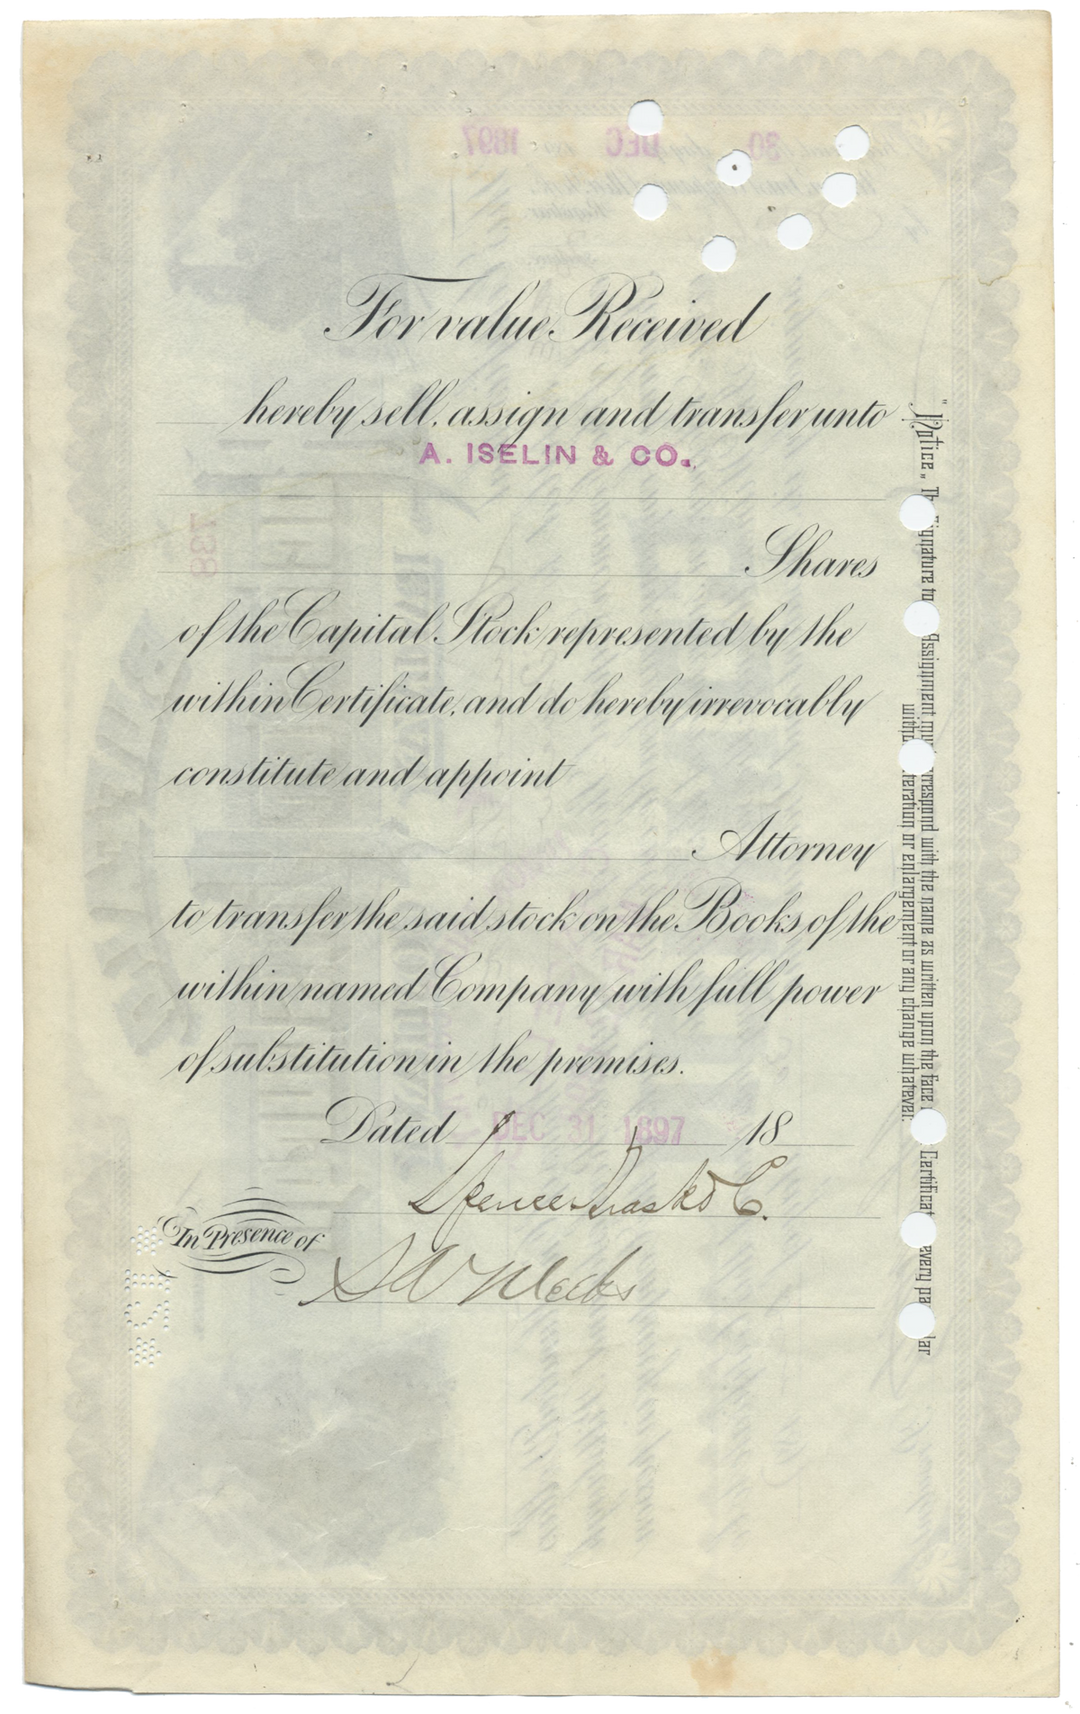 DEC 30 1897
For value Received
hereby sell, assign and transfer unto
A. ISELIN & CO.
Shares
of the Capital Stock represented by the
within Certificate, and do hereby irrevocably
constitute and appoint
Attorney
to transfer the said stock on the Books of the
within named Company with full power
of substitution in the premises.
Dated DEC 31 1897 18
Spencer Trask & Co.
In Presence of
"Notice." The Signature to Assignment must correspond with the name as written upon the face Certificate every particular
without alteration or enlargement or any change whatever.
138